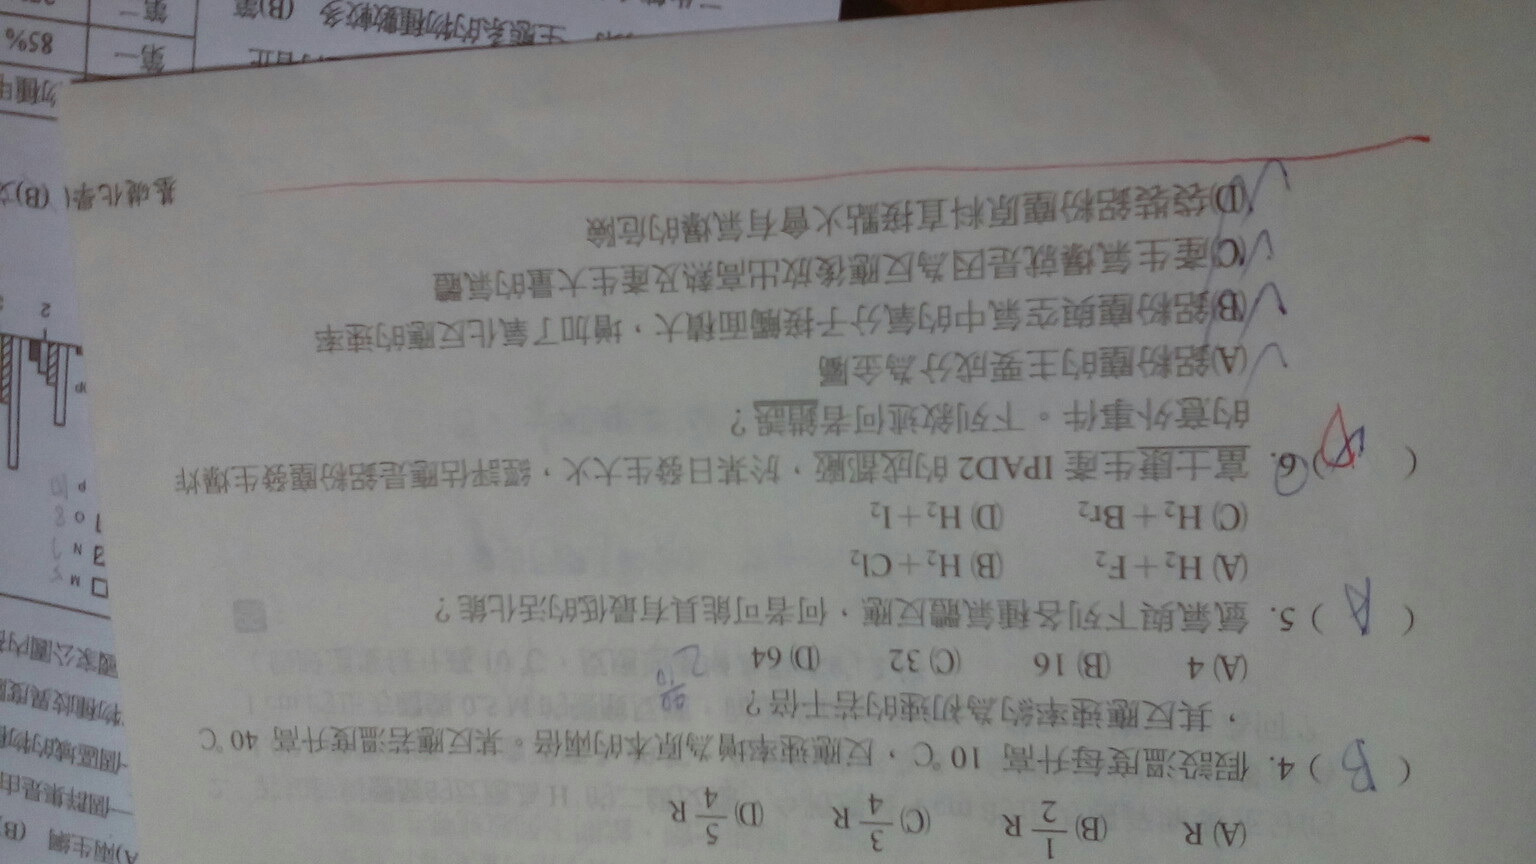 (A) R (B) 1/2 R (C) 3/4 R (D) 5/4 R
( B ) 4. 假設溫度每升高 10 ℃，反應速率增為原本的兩倍。某反應若溫度升高 40 ℃
，其反應速率約為初速的若干倍？
(A) 4 (B) 16 (C) 32 (D) 64
( A ) 5. 氫氣與下列各種氣體反應，何者可能具有最低的活化能？
(A) H₂＋F₂ (B) H₂＋Cl₂
(C) H₂＋Br₂ (D) H₂＋I₂
( ) 6. 富士康生產 IPAD2 的成都廠，於某日發生大火，經評估應是鋁粉塵發生爆炸
的意外事件。下列敘述何者錯誤？
(A)鋁粉塵的主要成分為金屬
(B)鋁粉塵與空氣中的氧分子接觸面積大，增加了氧化反應的速率
(C)產生氣爆就是因為反應後放出高熱及產生大量的氣體
(D)袋裝鋁粉塵原料直接點火會有氣爆的危險
基礎化學(
(B)文
A)兩生綱 (B)
一個群集是由
個區域的物種
物種歧異度
國家公園內
M
N
O
P
2
85%
第一
第一
生態系的物種數較多 (B)第